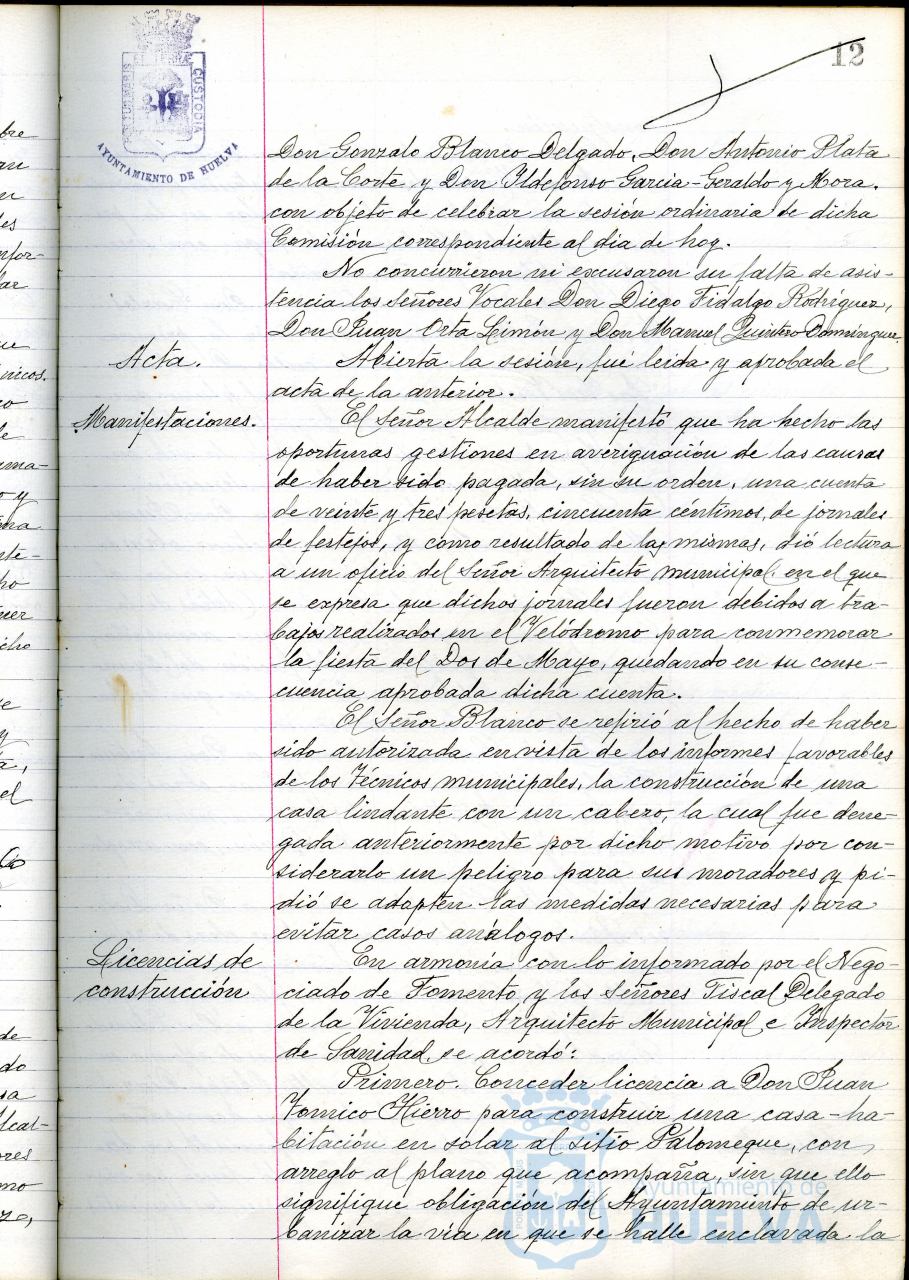 12
PORTUS MARIS ET TERRAE CUSTODIA
AYUNTAMIENTO DE HUELVA
Don Gonzalo Blanco Delgado, Don Antonio Plata
de la Corte y Don Ildefonso Garcia-Geraldo y Mora.
con objeto de celebrar la sesión ordinaria de dicha
Comisión correspondiente al dia de hoy.
No concurrieron ni excusaron su falta de asis-
tencia los señores Vocales Don Diego Fidalgo Rodríguez,
Don Juan Orta Limón y Don Manuel Quintero Domínguez.
Acta.
Abierta la sesión, fué leida y aprobada el
acta de la anterior.
Manifestaciones.
El Señor Alcalde manifestó que ha hecho las
oportunas gestiones en averiguación de las causas
de haber sido pagada, sin su orden, una cuenta
de veinte y tres pesetas, cincuenta céntimos, de jornales
de festejos, y como resultado de las mismas, dió lectura
a un oficio del Señor Arquitecto municipal, en el que
se expresa que dichos jornales fueron debidos a tra-
bajos realizados en el Velódromo para conmemorar
la fiesta del Dos de Mayo, quedando en su conse-
cuencia aprobada dicha cuenta.
El Señor Blanco se refirió al hecho de haber
sido autorizada en vista de los informes favorables
de los Técnicos municipales, la construcción de una
casa lindante con un cabezo, la cual fue dene-
gada anteriormente por dicho motivo por con-
siderarlo un peligro para sus moradores y pi-
dió se adopten las medidas necesarias para
evitar casos análogos.
Licencias de
construcción
En armonía con lo informado por el Nego-
ciado de Fomento y los Señores Fiscal Delegado
de la Vivienda, Arquitecto Municipal e Inspector
de Sanidad, se acordó:
Primero. Conceder licencia a Don Juan
Tomico Hierro para construir una casa-ha-
bitación en solar al sitio Palomeque, con
arreglo al plano que acompaña, sin que ello
signifique obligación del Ayuntamiento de ur-
banizar la vía en que se halle enclavada la
Ayuntamiento de
HUELVA